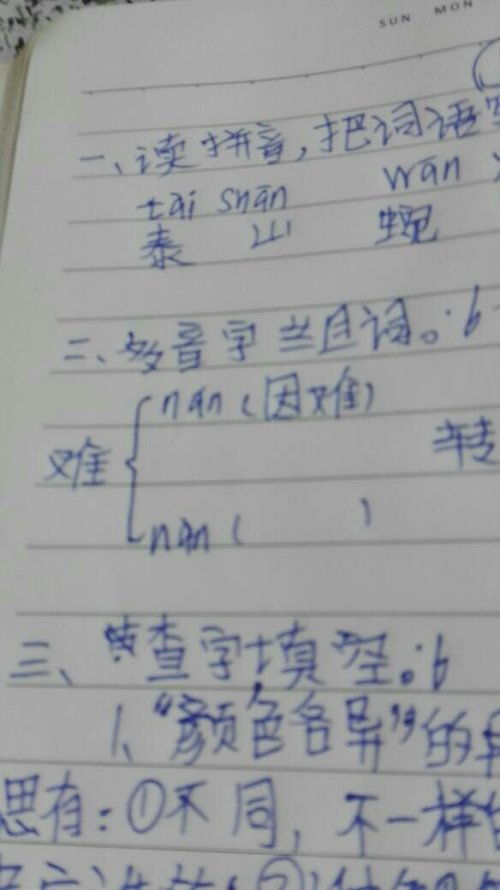 SUN MON
一、读拼音,把词语写
tai shan wan
泰 山 蜿
二、多音字兰且词。:6
难 nan(因难) 转
nan( )
三、查字填空。:6
1、“颜色各异”的异
思有:①不同,不一样